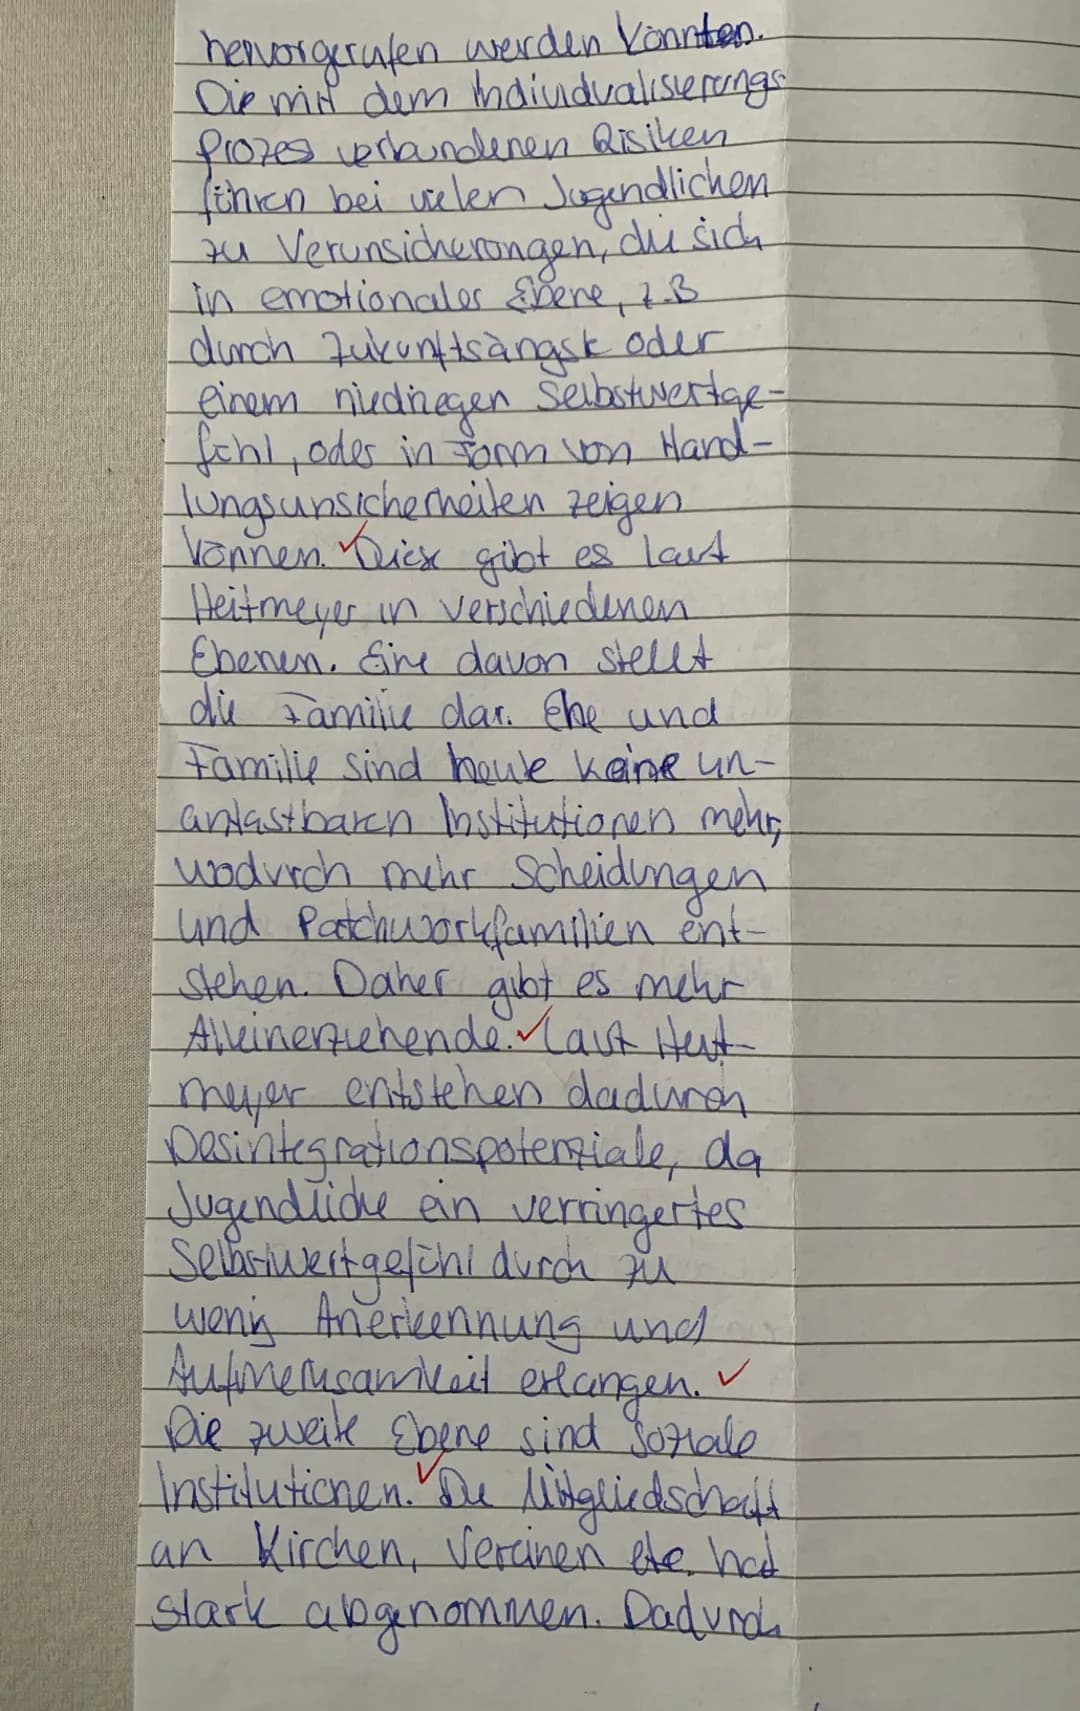 hervorgerufen werden könnten.
Die mit dem Individualisierungs
prozes verbundenen Risiken
führen bei vielen Jugendlichen
zu Verunsicherungen, die sich
in emotionaler Ebene, z.B
durch Zukunftsängst oder
einem niedriegen Selbstwertge-
fühl, oder in Form von Hand-
lungsunsicherheiten zeigen
können. Diese gibt es laut
Heitmeyer in verschiedenen
Ebenen. Eine davon stellt
die Familie dar. Ehe und
Familie sind heute keine un-
antastbaren Institutionen mehr,
wodurch mehr Scheidungen
und Patchworkfamilien ent-
stehen. Daher gibt es mehr
Alleinerziehende. Laut Heit-
meyer entstehen dadurch
Desintegrationspotenziale, da
Jugendliche ein verringertes
Selbstwertgefühl durch zu
wenig Anerkennung und
Aufmerksamkeit erlangen.
Die zweite Ebene sind soziale
Institutionen. Die Mitgliedschaft
an Kirchen, Vereinen etc. hat
stark abgenommen. Dadurch